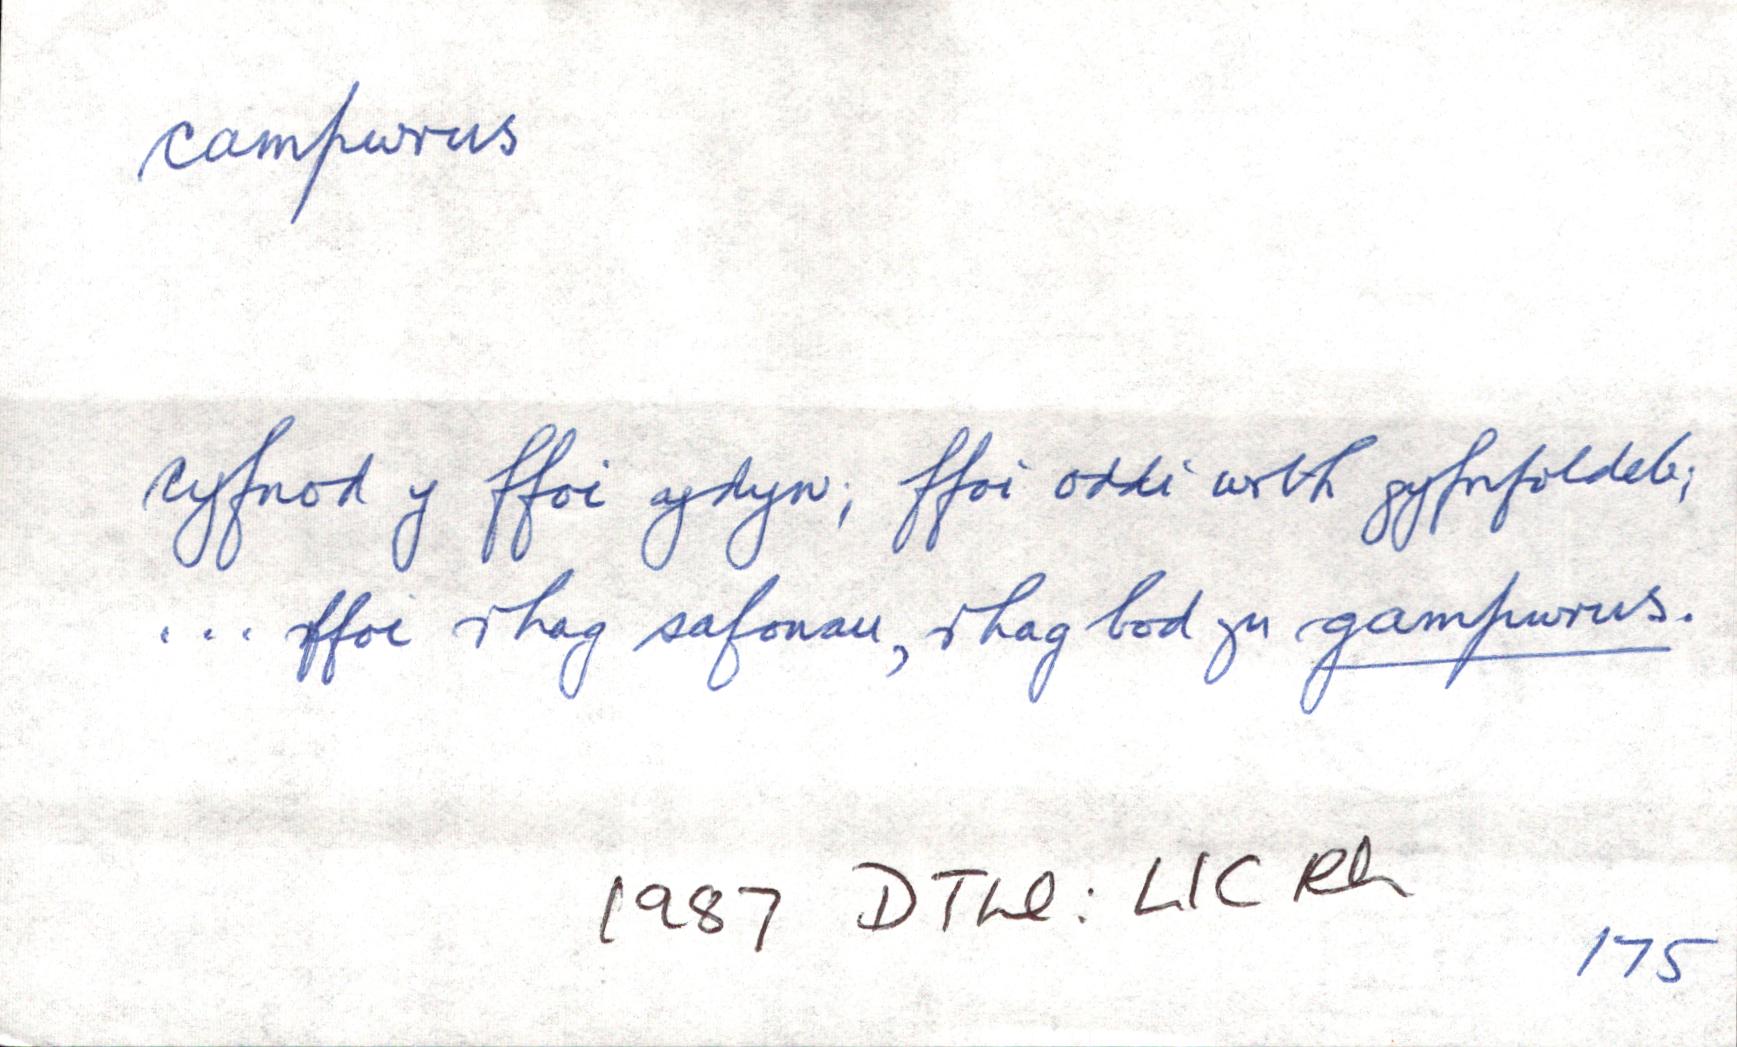 campwrus
cyfnod y ffoi ydyw; ffoi oddi wrth gyfrifoldeb;
... ffoi rhag safonau, rhag bod yn gampwrus.
1987 DTLl: LlC Rh
175